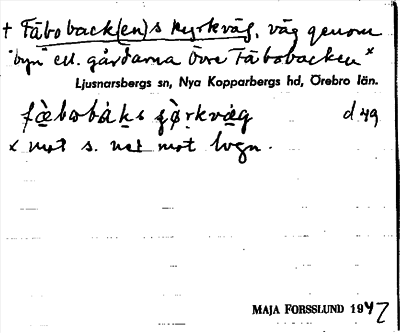 + Fäboback(en)s kyrkväg, väg genom
"byn" ell. gårdarna Övre Fäbobacken x
Ljusnarsbergs sn, Nya Kopparbergs hd, Örebro län.
d 49
x mot s. mot
MAJA FORSSLUND 1947